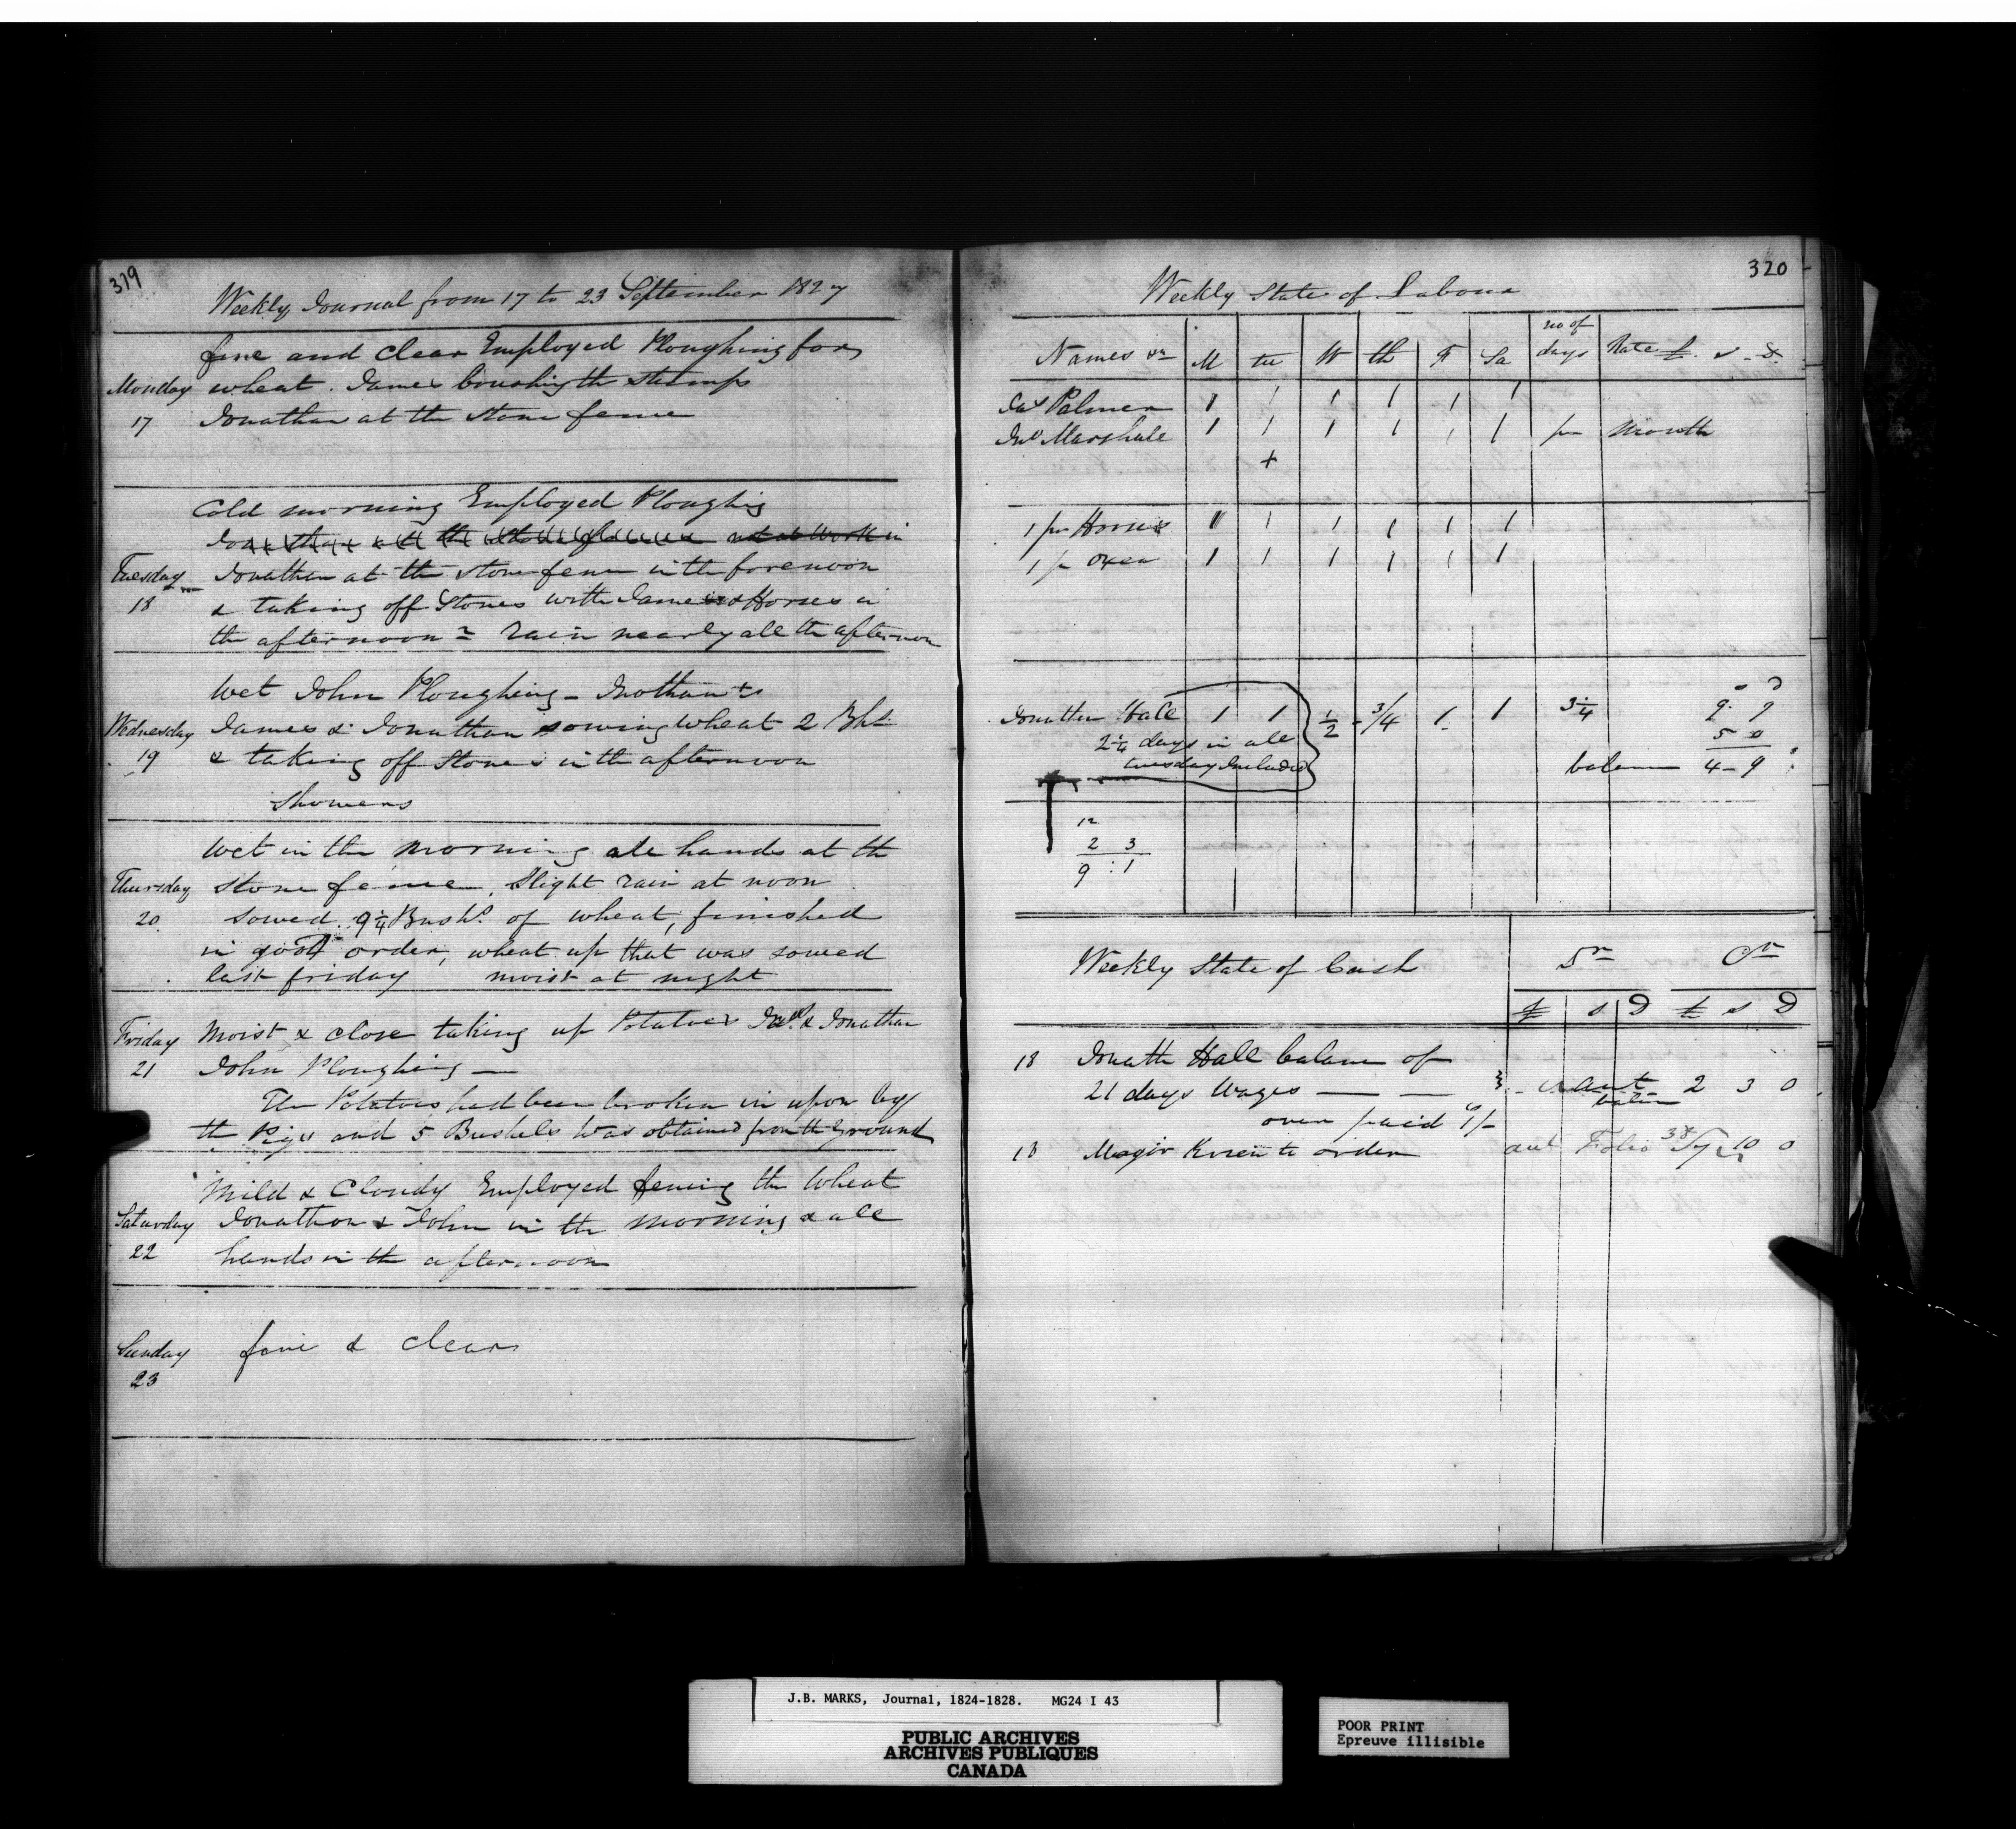 319
Weekly Journal from 17 to 23 September 1827
fine and clear Employed Ploughing for
Monday wheat. James brushing the stumps
17 Jonathan at the stone fence
Cold morning Employed Ploughing
Jonathan at the stone fence not at work in
Tuesday Jonathan at the stone fence in the forenoon
18 & taking off Stones with James & Horses in
the afternoon rain nearly all the afternoon
Wet John Ploughing -
Wednesday James & Jonathan sowing wheat 2
19 & taking off Stones in the afternoon
Showers
Wet in the morning all hands at the
Thursday stone fence, Slight rain at noon
20. Sowed 9¼ Bushs. of wheat, finished
in good order, wheat up that was sowed
last friday moist at night
Friday Moist & close taking up Potatoes & Jonathan
21 John Ploughing —
The Potatoes had been broken in upon by
the Pigs and 5 Bushels was obtained from the ground
Mild & Cloudy Employed fencing the Wheat
Saturday Jonathon & John in the morning & all
22 hands in the afternoon
Sunday fine & clear
23
320
Weekly State of Labour
Names &c M tu W th F Sa no of days Rate £. s - d.
Jas Palmer 1 1 1 1 1 1
Jno Marshall 1 1 1 1 1 1 pr Month
+
1 pr Horses 1 1 1 1 1 1
1 pr Oxen 1 1 1 1 1 1
Jonathan Hall 1 1 ½ ¾ 1 1 3¼ 9. 9
2¼ days in all 5 0
tuesday Included balance 4 - 9
12
2 3
9 : 1
Weekly State of Cash Dr Cr
£ s D £ s D
18 Jonath Hall balance of
21 days Wages — — 2 3 0
over paid 1/-
18 Major order Folio 10 0
J.B. MARKS, Journal, 1824-1828. MG24 I 43
PUBLIC ARCHIVES
ARCHIVES PUBLIQUES
CANADA
POOR PRINT
Epreuve illisible